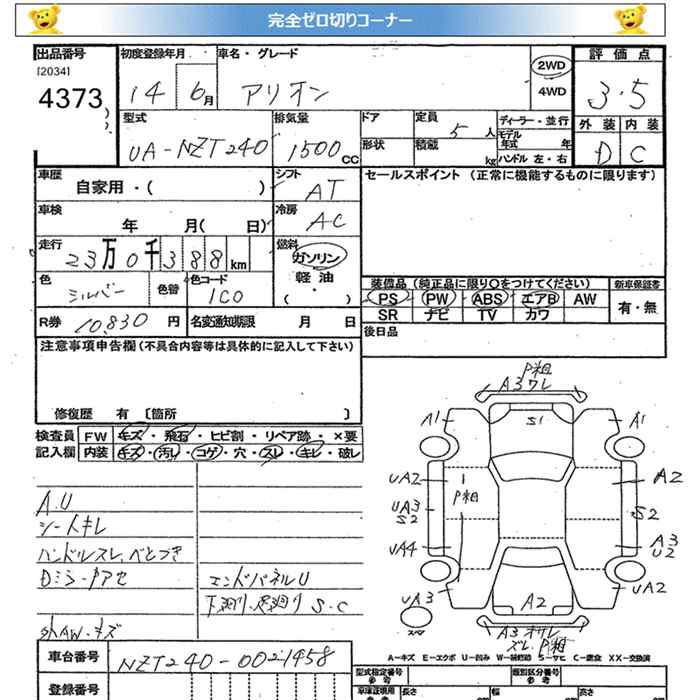 完全ゼロ切りコーナー
出品番号 初度登録年月 車名・グレード 2WD 評価点
[2034]
4373 14 6月 アリオン 4WD 3.5
型式 排気量 ドア 定員 5人 ディーラー・並行 外装 内装
UA-NZT240 1500cc 形状 積載 kg モデル年式 年 D C
ハンドル 左・右
車歴 シフト セールスポイント (正常に機能するものに限ります)
自家用・( ) AT
車検 冷房
年 月( 日) AC
走行 燃料
23万0千388km ガソリン
色 色替 色コード 軽油・ 装備品 (純正品に限り○をつけてください) 新車保証書
シルバー 1C0 ( ) PS PW ABS エアB AW 有・無
SR ナビ TV カワ
R券 10,830円 名変通知期限 月 日 後日品
注意事項申告欄 (不具合内容等は具体的に記入して下さい)
修復歴 有 〔箇所 〕
検査員 FW キズ・飛石・ヒビ割・リペア跡・×要
記入欄 内装 キズ・汚れ・コゲ・穴・スレ・キレ・破レ
A.U
シートキレ
ハンドルスレ、べとつき
エンドパネルU
下廻り、足廻り S.C
P粗
A3ワレ
A1 S1 A1
UA2 1 A2
P粗
UA3 S2
S2
UA4 A3
U2
UA3 A2 UA2
スペア
A3
P粗
車台番号 NZT240-0021458
登録番号
型式指定番号 類別区分番号
参考 参考
長さ 幅 高さ